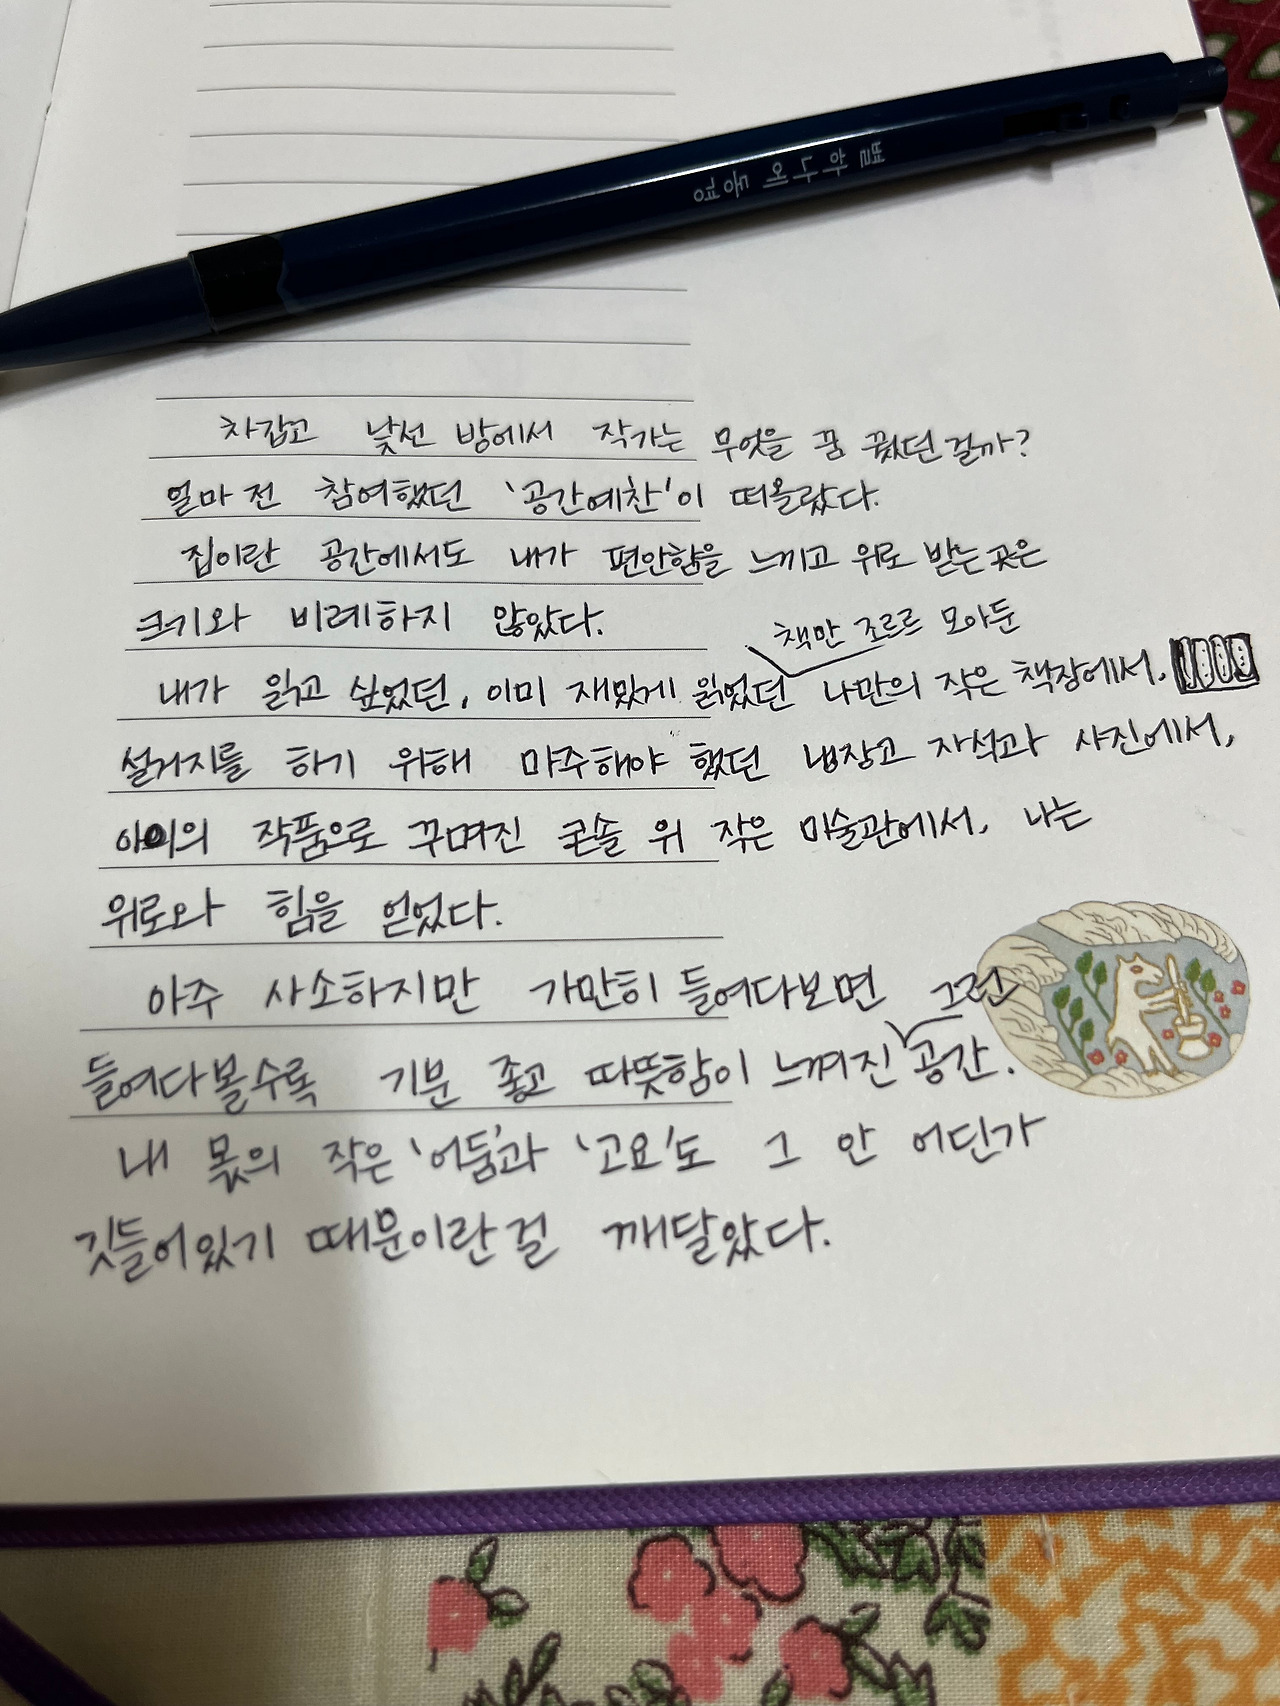 별 하나에 동경
차갑고 낯선 방에서 작가는 무엇을 꿈 꿨던 걸까?
얼마 전 참여했던 '공간예찬'이 떠올랐다.
집이란 공간에서도 내가 편안함을 느끼고 위로 받는 곳은
크기와 비례하지 않았다.
책만 조르르 모아둔
내가 읽고 싶었던, 이미 재밌게 읽었던 나만의 작은 책장에서,
설거지를 하기 위해 마주해야 했던 냉장고 자석과 사진에서,
아이의 작품으로 꾸며진 콘솔 위 작은 미술관에서, 나는
위로와 힘을 얻었다.
아주 사소하지만 가만히 들여다보면 그런
들여다볼수록 기분 좋고 따뜻함이 느껴진 공간.
내 몫의 작은 '어둠'과 '고요'도 그 안 어딘가
깃들어있기 때문이란 걸 깨달았다.